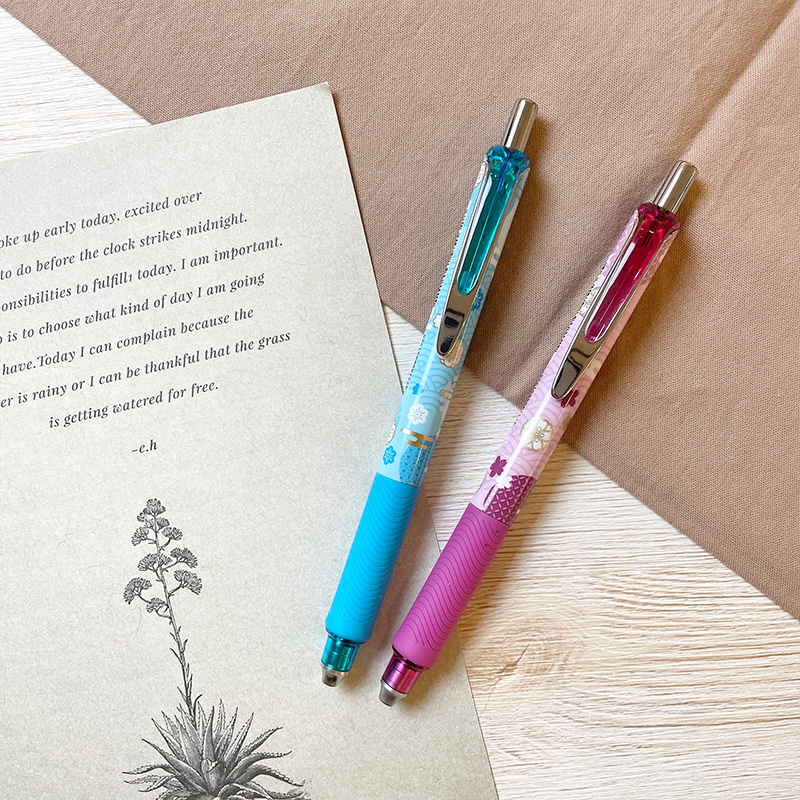 oke up early today, excited over
to do before the clock strikes midnight.
onsibilities to fulfillı today. I am important.
is to choose what kind of day I am going
have.Today I can complain because the
er is rainy or I can be thankful that the grass
is getting watered for free.
-e.h